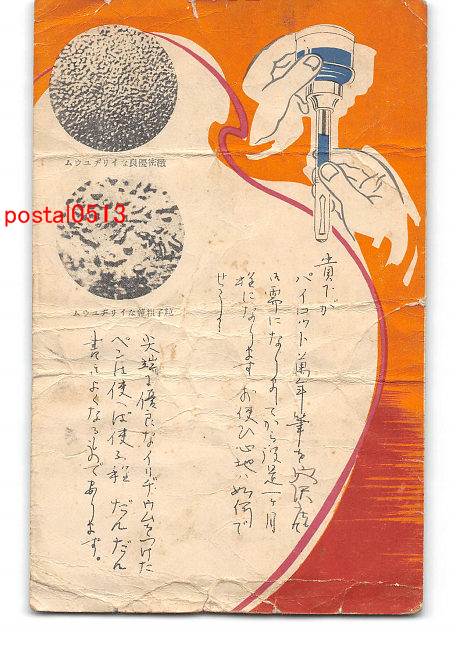 緻密優良なイリヂユウム
粒子粗鬆なイリヂユウム
postal0513
貴下が
パイロット萬年筆を
になりましてから 一ヶ月
程になります お使ひ心地は如何で
せう
尖端に優良なイリヂウムをつけた
ペンは使へば使ふ程 だんだん
書きよくなるものであります。